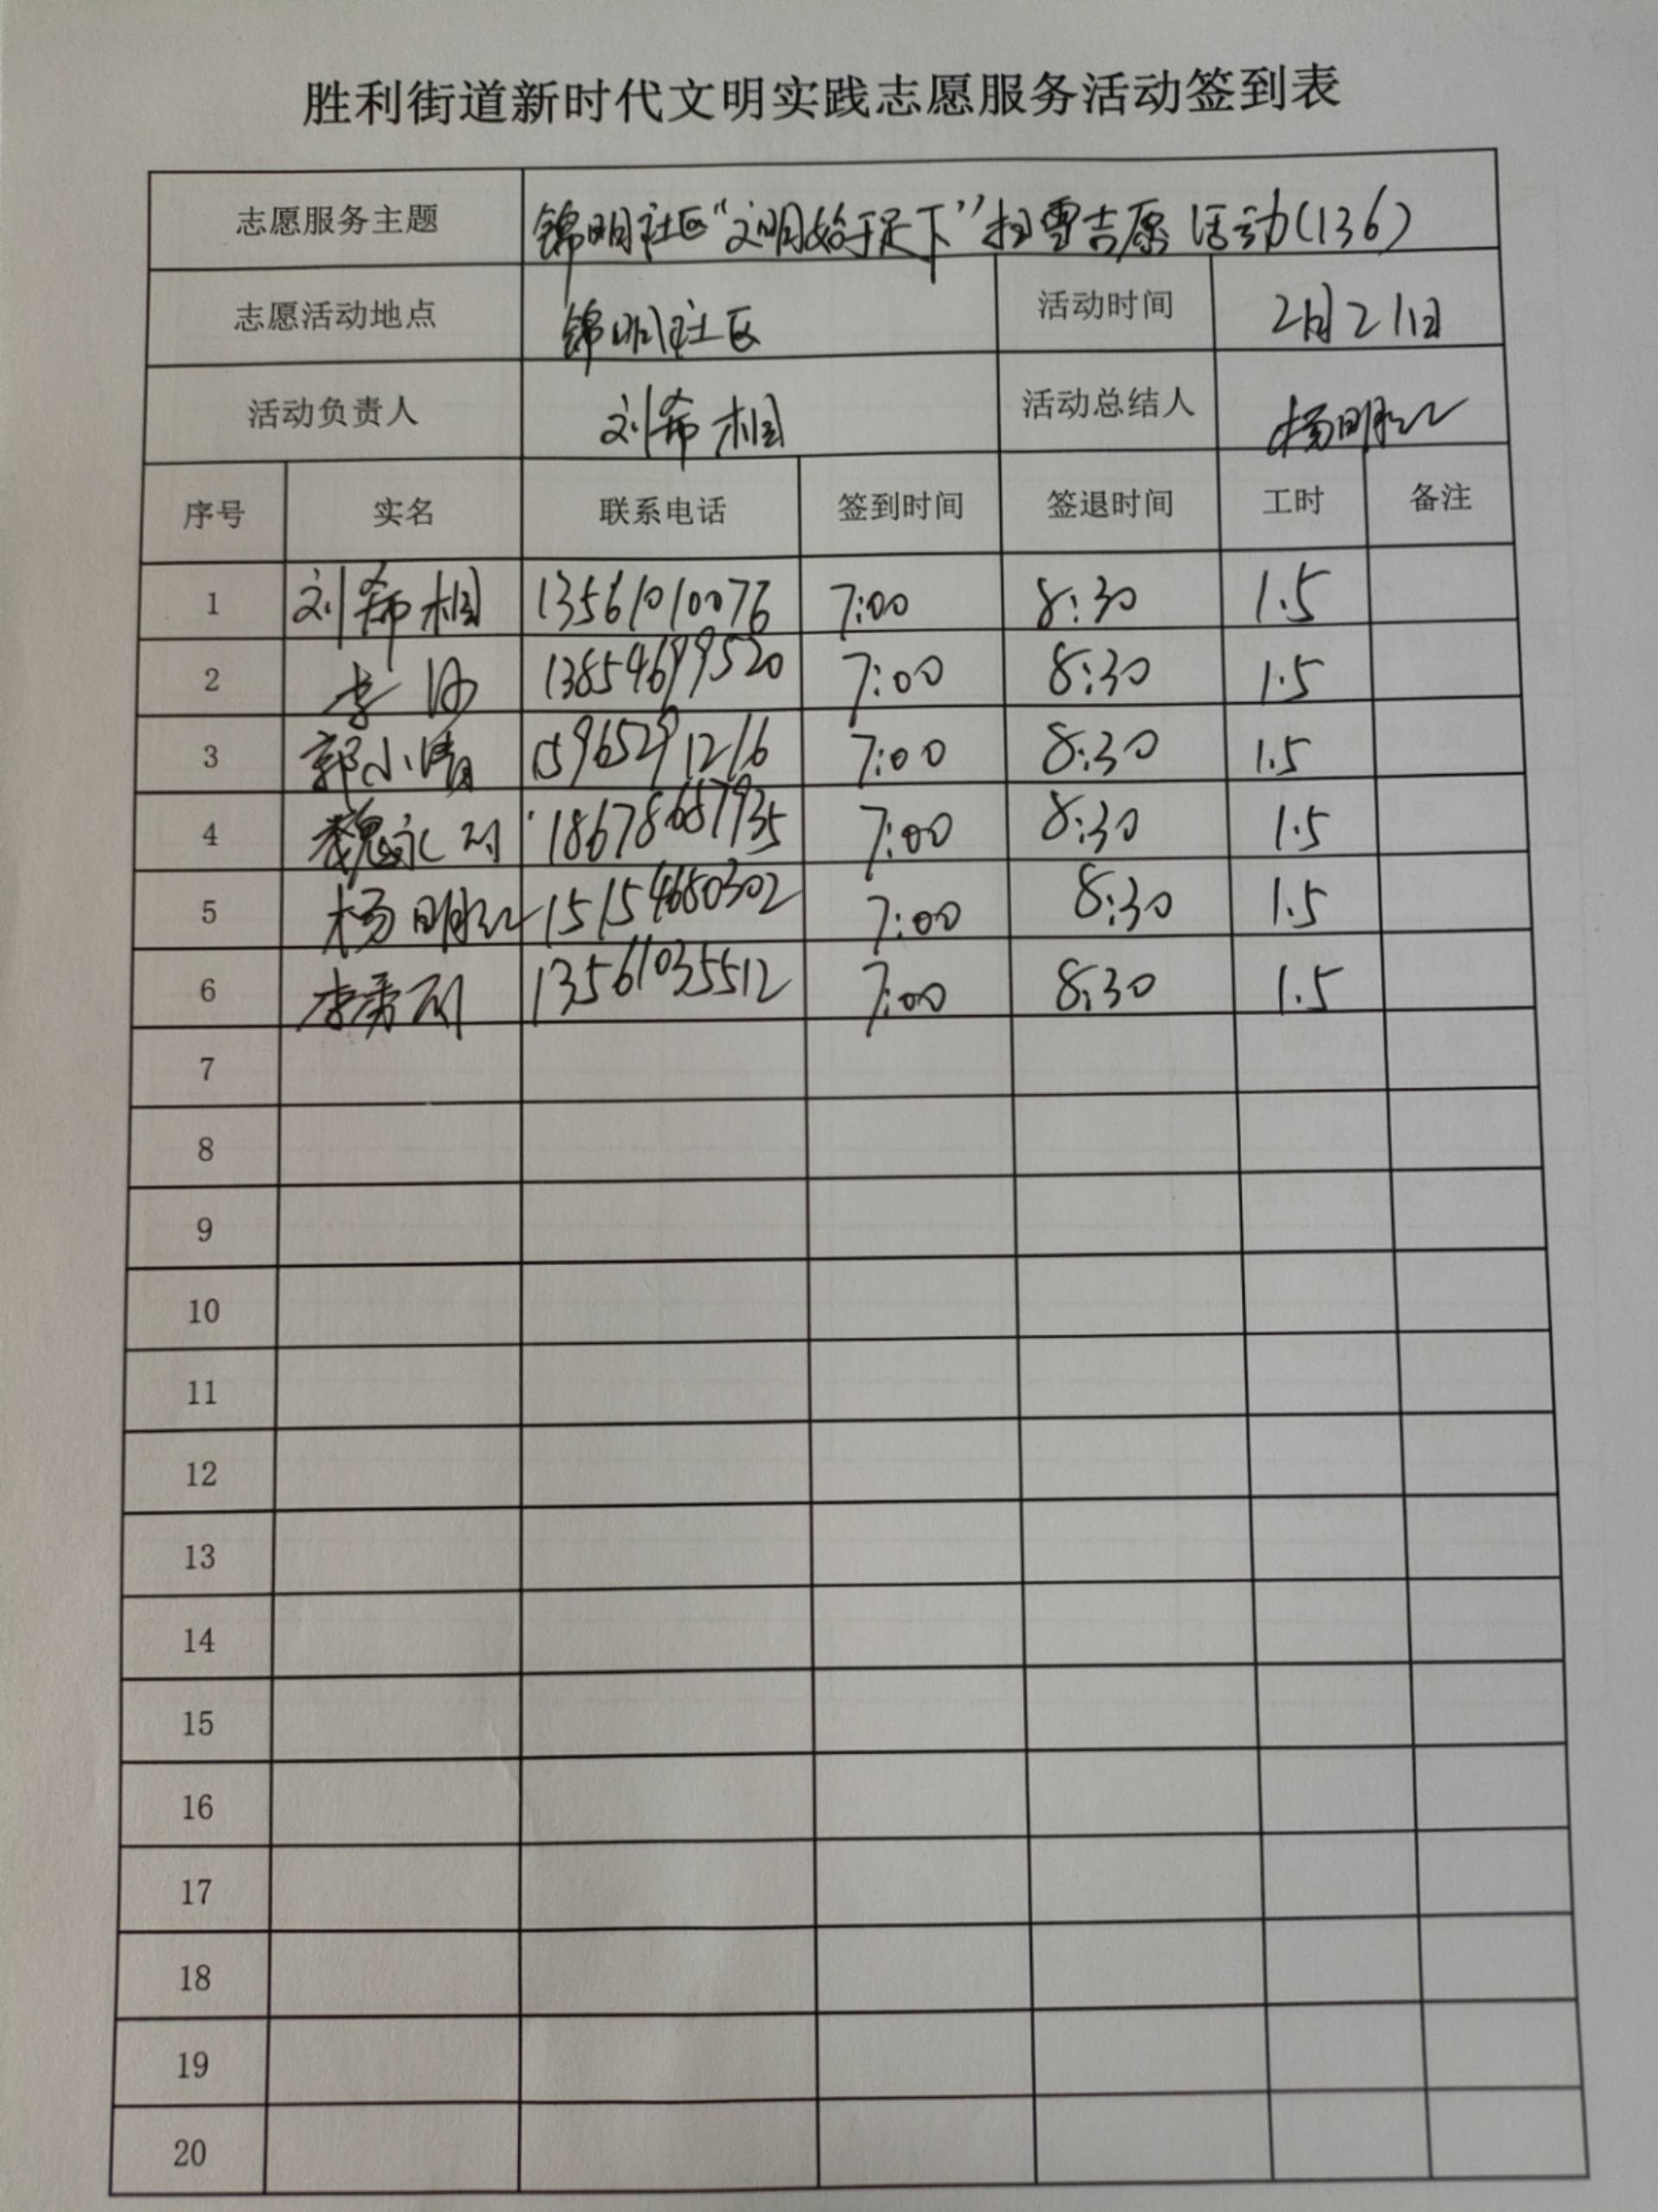 胜利街道新时代文明实践志愿服务活动签到表
志愿服务主题 锦明社区“文明始于足下”扫雪志愿活动(136)
志愿活动地点 锦明社区 活动时间 2月21日
活动负责人 刘希相 活动总结人 杨明红
序号 实名 联系电话 签到时间 签退时间 工时 备注
1 刘希相 13561010076 7:00 8:30 1.5
2 李 13854699520 7:00 8:30 1.5
3 郭小清 15965291216 7:00 8:30 1.5
4 魏永利 18678687935 7:00 8:30 1.5
5 杨明红 15154680302 7:00 8:30 1.5
6 李 13561035512 7:00 8:30 1.5
7
8
9
10
11
12
13
14
15
16
17
18
19
20